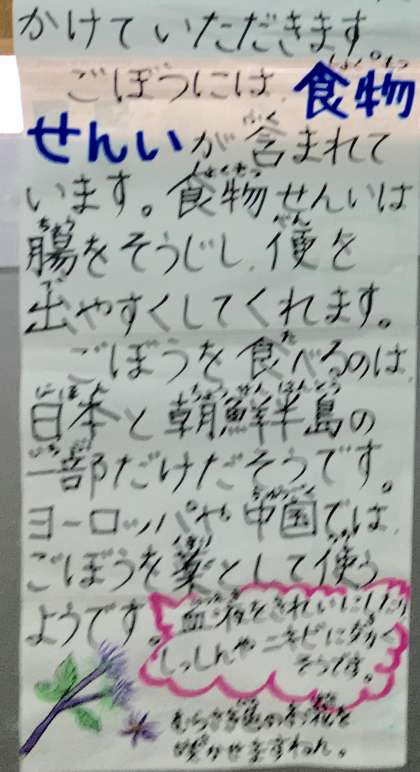 かけていただきます。
ごぼうには、食物
せんいが含まれて
います。食物せんいは
腸をそうじし、便を
出やすくしてくれます。
ごぼうを食べるのは、
日本と朝鮮半島の
一部だけだそうです。
ヨーロッパや中国では、
ごぼうを薬として使う
ようです。
血液をきれいにしたり
しっしんやニキビにきく
そうです。
むらさき色の お花を
咲かせますわん。